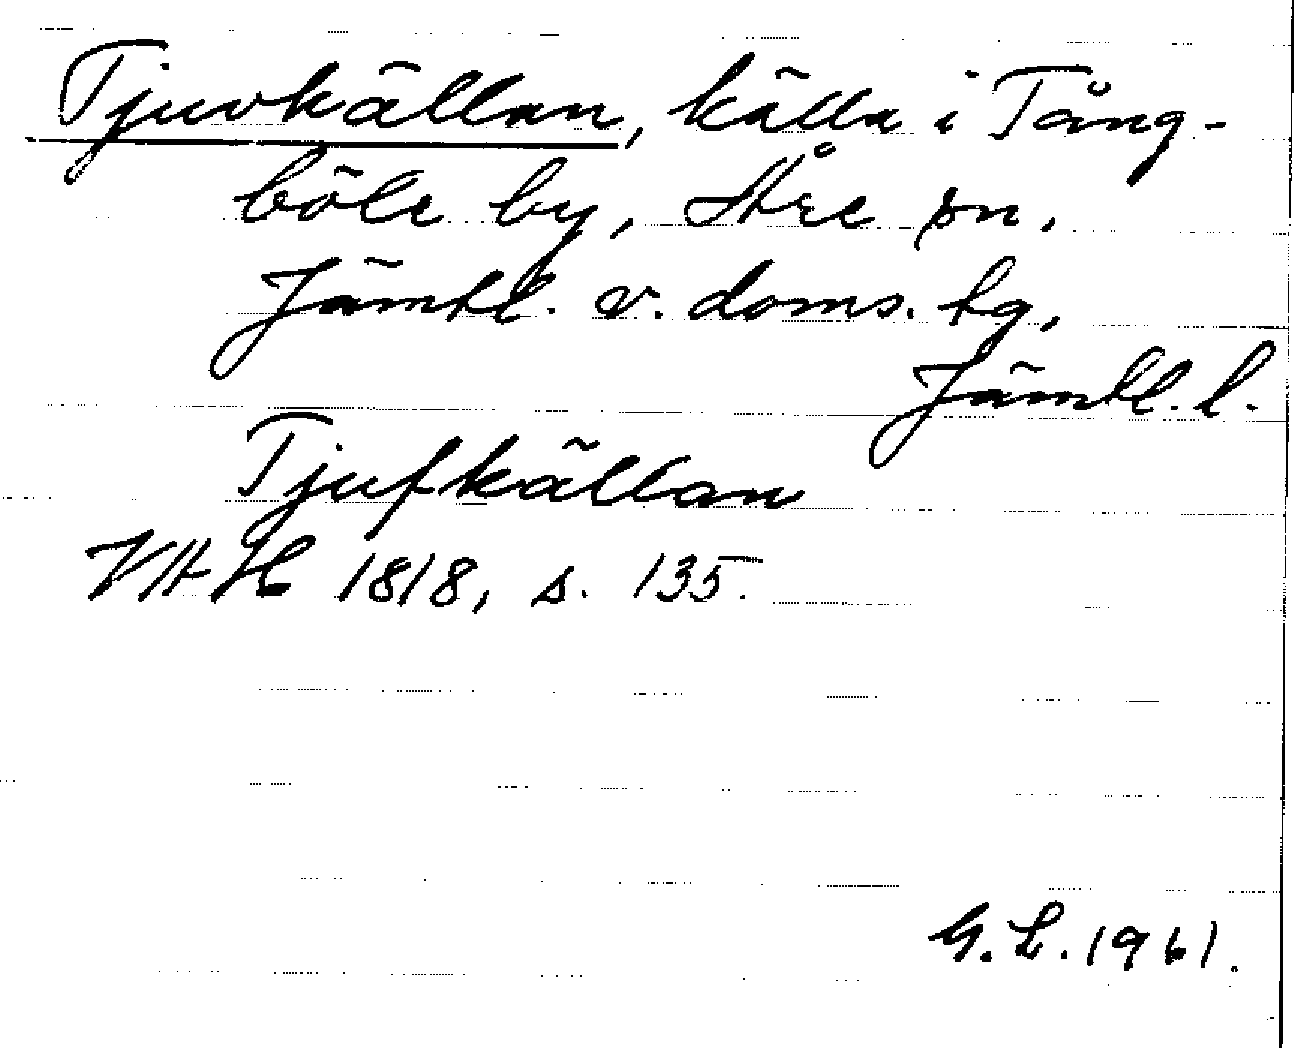 Tjuvkällan, källa i Tång-
böle by, Åre sn.
Jämtl. v. doms. tg,
Jämtl. l.
Tjufkällan
VAH 1818, s. 135.
G. L. 1961.